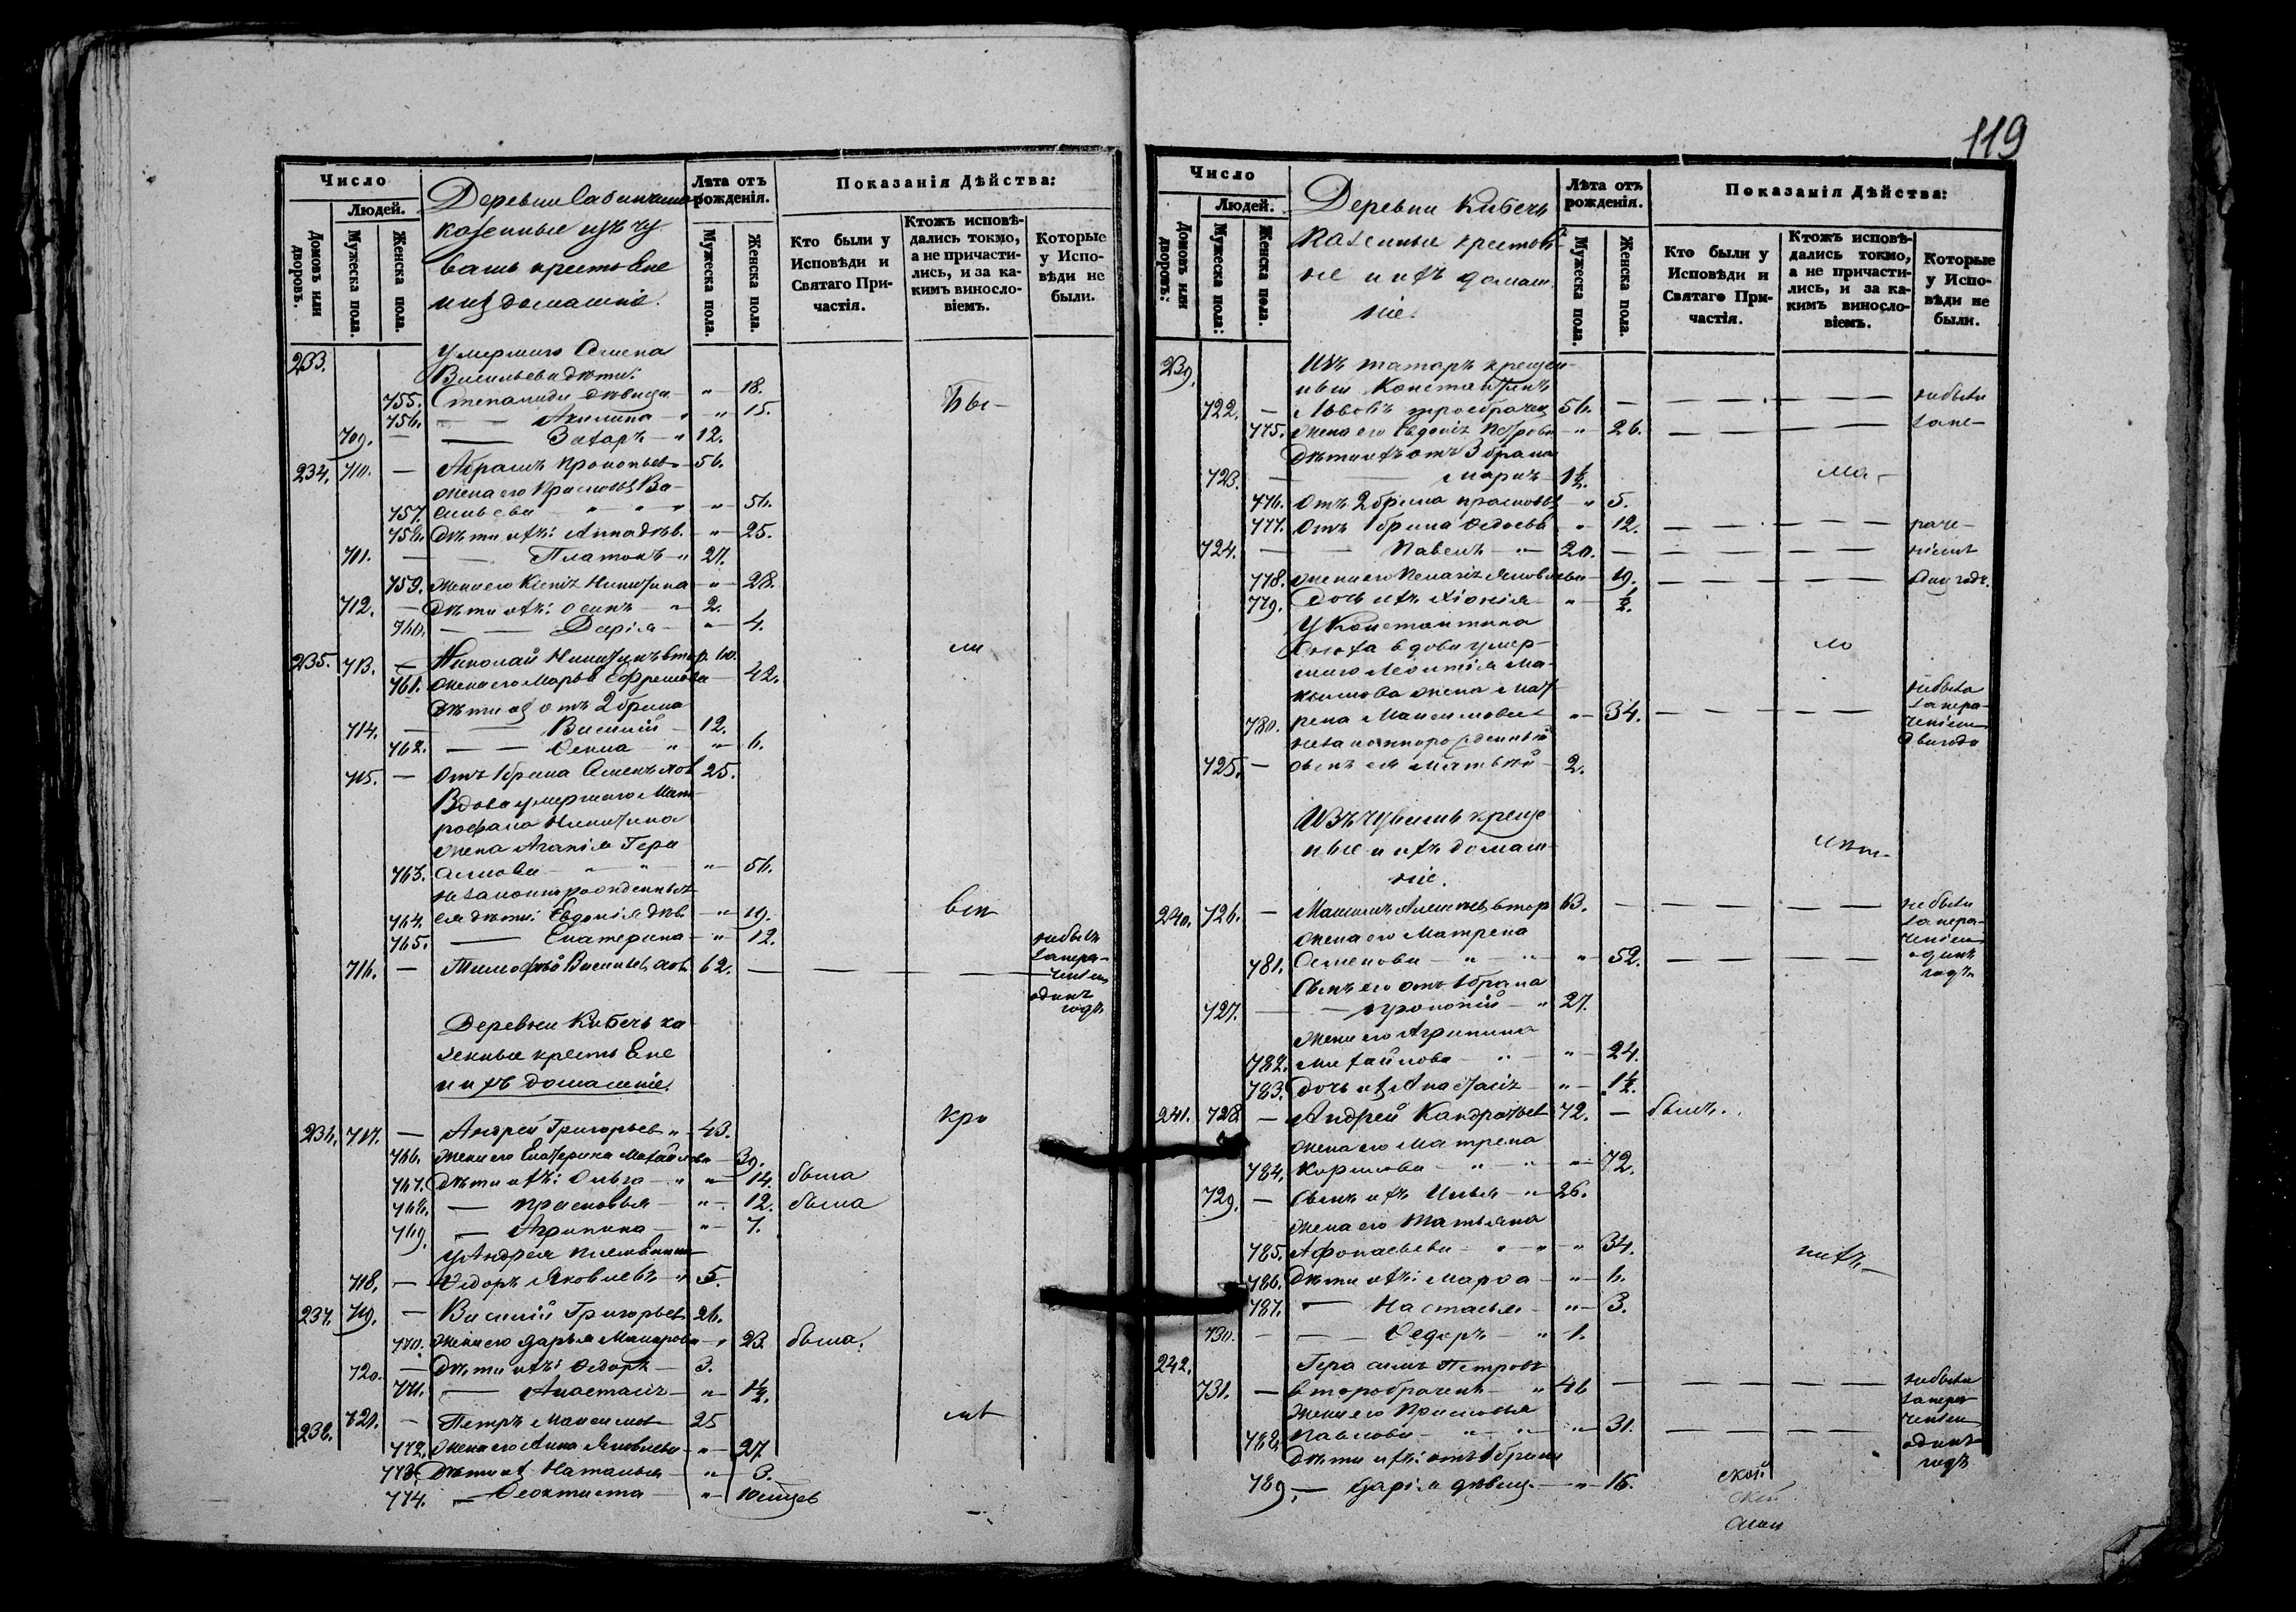 119
Число
Людей.
Домовъ или дворовъ.
Мужеска пола.
Женска пола.
Деревни
казенные изъ чу
вашъ кресть Ене
и их домашніе.
Лѣта отъ рожденія.
Мужеска пола.
Женска пола.
Показанія Дѣйства:
Кто были у Исповѣди и Святаго Причастія.
Ктожъ исповѣдались токмо, а не причастились, и за какимъ винословіемъ.
Которые у Исповѣди не были.
233. Умершаго Семена
Васильева дѣти:
755. Степанида дѣвица - " - 18.
756. — — Акилина - " - 15.
709. — — Захаръ - " 12.
234. 710. — Абрамъ Прокопьев 56.
жена его Прасковья Ва-
757. сильева " " " - 56.
758. Дѣти ихъ: Анна дѣв. - " - 25.
711. — — Платонъ - " 27.
759. Жена его Ксенія Никитина - " - 28.
712. — Дѣти ихъ: Осипъ - " 2.
760. — — Дарія - " - 4.
235. 713. — Николай Никитинъ втор.
761. жена его Марья Ефремова - 42.
Дѣти их отъ 2 брака
714. — — Василій - 12.
762. — — Фекла - " - " - 6.
715. — Отъ 1 брака Семенъ хол 25.
Вдова умершаго Мит-
рофана Никитина
жена Агапія Гера
763. симова - " - " - " - 56.
незаконнорожденныя
764. ея дѣти: Евдокія дѣв. - " - 19.
765. — Екатерина - " - 12.
716. — Тимофей Васильев хол. 62. — — — — не былъ
одинъ
годъ
Деревни Кибечь ка
зенные кресть Ене
и ихъ домашніе.
236. 717. — Андрей Григорьев " 43.
766. Жена его Екатерина Михайлова - 39.
767. Дѣти ихъ: Ольга - " - " - 14. была
768. — Прасковья - " - 12. была
769. — Агрипина - " - 7.
У Андрея племянник
718. — Федоръ Яковлевъ - " 5.
237. 719. — Василій Григорьев 26.
770. Жена его Дарья Макарова - " 23 была.
720. — Дѣти ихъ: Федоръ - 3.
771. — Анастасія - " - 1½.
238. 721. — Петръ Максимов 25
772. Жена его Анна Яковлева - " - 27
773. Дѣти их Наталья - " - 3.
774. — Феоктиста - " - 10 мцев
Число
Людей.
Домовъ или дворовъ:
Мужеска пола:
Женска пола.
Деревни Кибечь
казенные крестья
не и ихъ домаш
ніе.
Лѣта отъ рожденія.
Мужеска пола.
Женска пола.
Показанія Дѣйства:
Кто были у Исповѣди и Святаго Причастія.
Ктожъ исповѣдались токмо, а не причастились, и за какимъ винословіемъ.
Которые у Исповѣди не были.
239. Изъ татаръ крещен-
ныи Константинъ
722. — Львовъ троебрачн 56. — — — — не были
775. Жена его Евдокія Петрова - " - 26. — — — за не-
Дѣти ихъ отъ 3 брака
723. — — Марк 1½.
776. Отъ 2 брака Прасковья " 5.
777. Отъ 1 брака Федосья " 12. — — — — раче-
724. — — Павелъ - " - 20. — — — — ніемъ
778. Жена его Пелагія Яковлева - 19. — — — —
779. Дочь ихъ Хіонія - " - ½.
У Константина
вдова умер-
шаго Леонтія Ма-
ксимова жена Мат
780. рена Максимова " 34. — — — — не была
незаконнорожденный
725. — сынъ ея Матвѣй - 2.
Изъ чувашъ креще
ные и ихъ домаш
ніе.
240. 726. — Максимъ Алексѣев втор 63. — — — — не были
жена его Матрена
781. Семенова - " " " 52. — — — — одинъ
годъ
Сынъ его отъ 1 брака
727. — — Прокопій - " 27.
жена его Агрипина
782. Михайлова - " - " - 24.
783. Дочь их Анастасія " - 1½.
241. 728. — Андрей Кандратьев 72. — былъ.
жена его Матрена
784. Кирилова - " - " - 72.
729. — Сынъ ихъ Илья - " 26.
жена его Татьяна
785. Афонасьева - " - " - 34.
786. Дѣти ихъ: Марфа - " - 6.
787. — Настасья - " - 3.
730. — — Федоръ - " 1.
242. Герасимъ Петровъ
731. — второбрачен - " 46 — — — — не были
Жена его Прасковья
788. Павлова - " - " - 31. — — — — одинъ
годъ
Дѣти ихъ: отъ 1 брака
789. — Дарія дѣвиц. - " - 16.